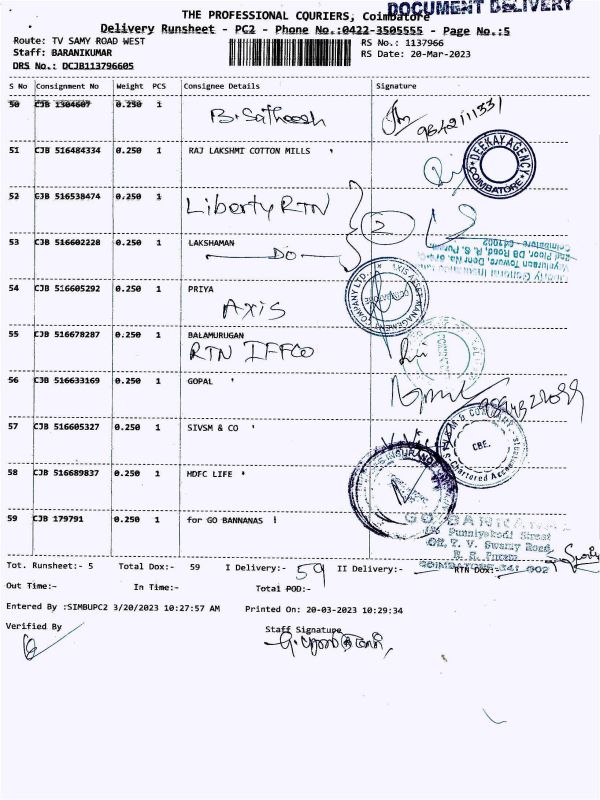 DOCUMENT DELIVERY
THE PROFESSIONAL COURIERS, Coimbatore
Delivery Runsheet - PC2 - Phone No.:0422-3505555 - Page No.:5
Route: TV SAMY ROAD WEST
RS No.: 1137966
Staff: BARANIKUMAR
RS Date: 20-Mar-2023
DRS No.: DCJB113796605
S No Consignment No Weight PCS Consignee Details Signature
50 CJB 1304607 0.250 1 B. Satheesh 9842111331
51 CJB 516484334 0.250 1 RAJ LAKSHMI COTTON MILLS
DEEKAY AGENCY
COIMBATORE
52 CJB 516538474 0.250 1 Liberty RTN
2
53 CJB 516602228 0.250 1 LAKSHAMAN
DO
2nd Floor, DB Road, R. S. Puram,
Coimbatore - 641002
54 CJB 516605292 0.250 1 PRIYA
AXIS
AXIS ASSET MANAGEMENT COMPANY LTD.
55 CJB 516678287 0.250 1 BALAMURUGAN
RTN IFFCO
56 CJB 516633169 0.250 1 GOPAL
57 CJB 516605327 0.250 1 SIVSM & CO
CBE.
Chartered Accountants
58 CJB 516689837 0.250 1 HDFC LIFE
INSURANCE
59 CJB 179791 0.250 1 for GO BANNANAS
GO BANNANAS
Punniyakodi Street
Off, T. V. Swamy Road,
R. S. Puram
COIMBATORE-641 002
Tot. Runsheet:- 5 Total Dox:- 59 I Delivery:- 59 II Delivery:- RTN Dox:-
Out Time:- In Time:- Total POD:-
Entered By :SIMBUPC2 3/20/2023 10:27:57 AM Printed On: 20-03-2023 10:29:34
Verified By Staff Signature